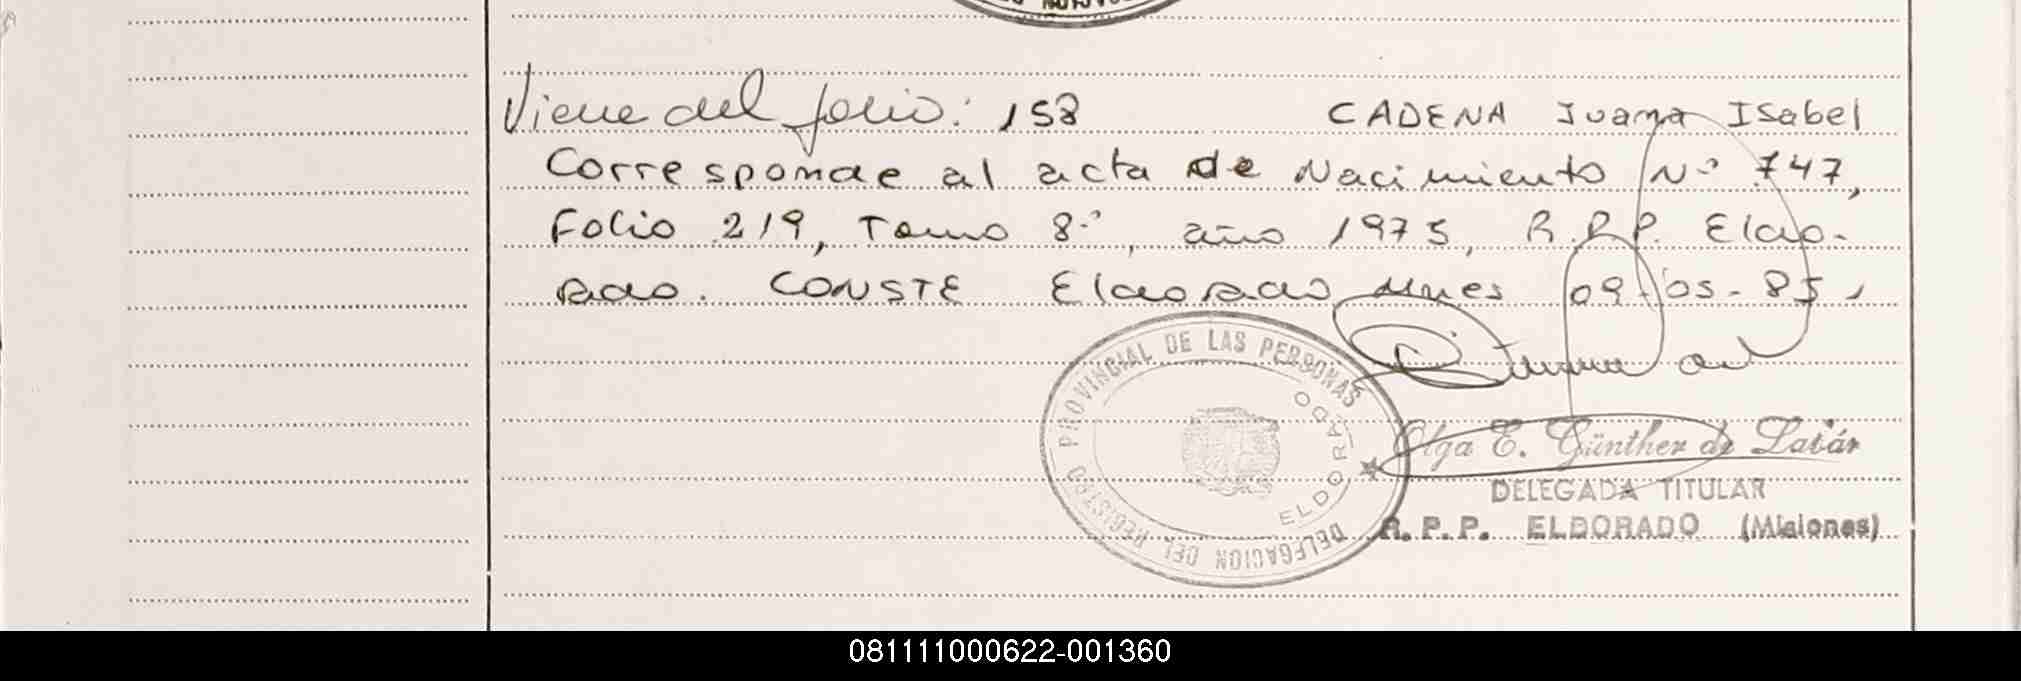 Viene del folio: 158 CADENA Juana Isabel
Corresponde al acta de Nacimiento Nº 747,
Folio 219, Tomo 8º, año 1975, R.P.P. Eldo-
rado. CONSTE Eldorado, Mnes 09-05-85,
DELEGACION DEL REGISTRO PROVINCIAL DE LAS PERSONAS
ELDORADO
Olga E. Günther de
DELEGADA TITULAR
R.P.P. ELDORADO (Misiones)
081111000622-001360